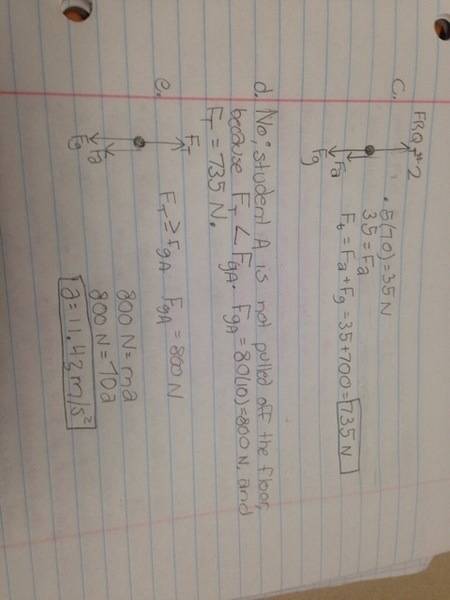 FRQ #2
C.
Fa
Fg
.5(70)=35N
35=Fa
Ft=Fa+Fg=35+700=735N
d. No; student A is not pulled off the floor,
because FT<FgA. FgA=80(10)=800N, and
FT=735N.
e.
FT
Fa
Fg
FT≥FgA FgA=800N
800N=ma
800N=70a
a=11.43m/s²